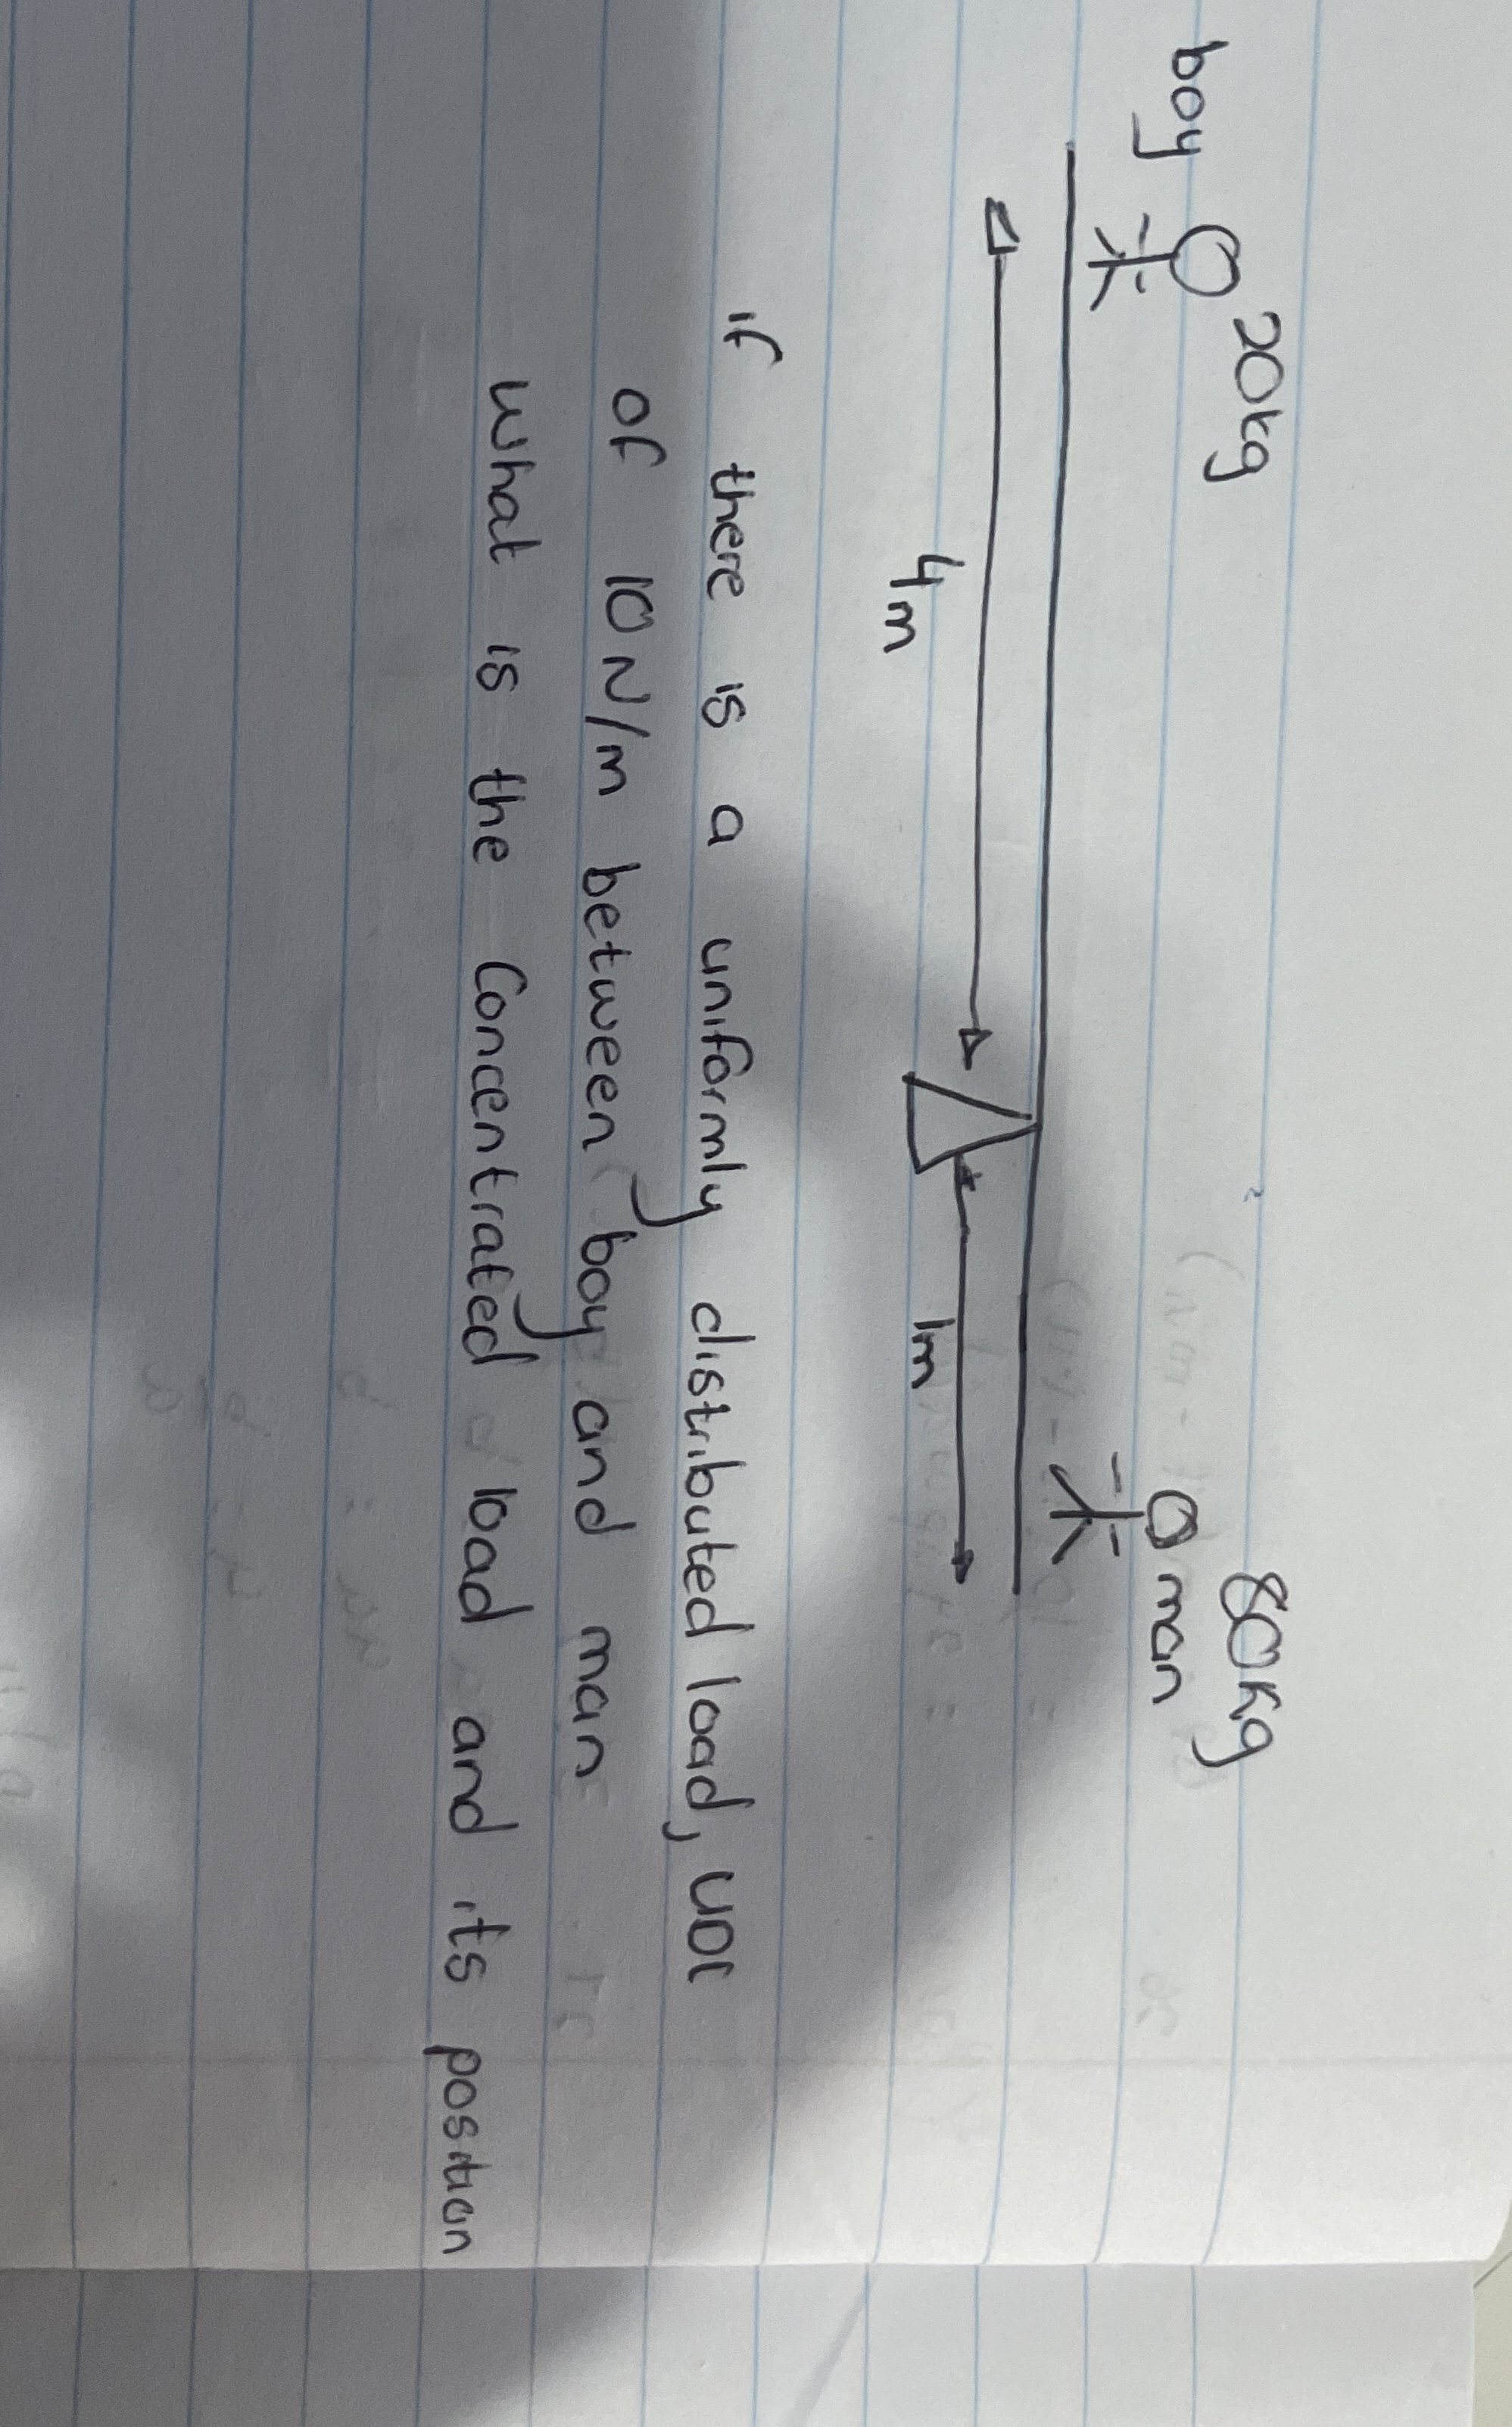 boy 20kg 80kg
man
4m 1m
if there is a uniformly distributed load,
of 10 N/m between boy and man
what is the Concentrated load and its position